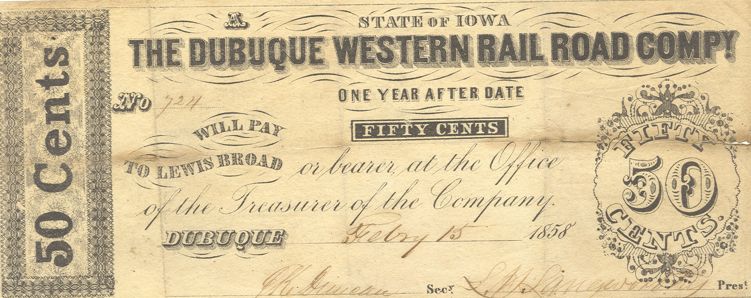 A
STATE OF IOWA
THE DUBUQUE WESTERN RAIL ROAD COMPY
50 Cents
No 724
ONE YEAR AFTER DATE
WILL PAY
FIFTY CENTS
TO LEWIS BROAD or bearer, at the Office
of the Treasurer of the Company.
DUBUQUE Febry 15 1858
FIFTY
50
CENTS.
Secy
Prest